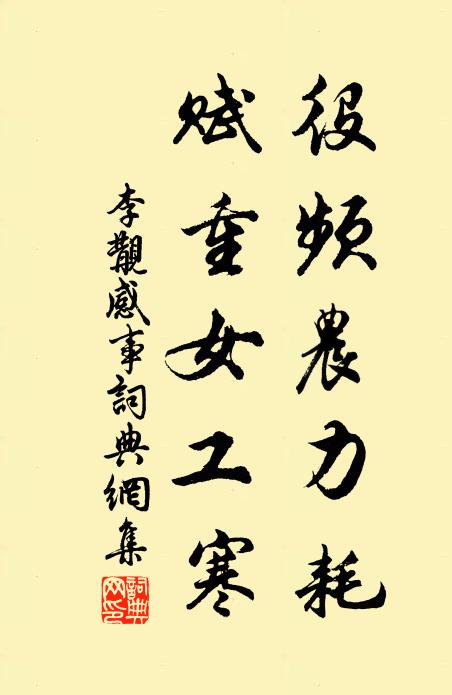 役頻農力耗
賦重女工寒
李覯感事詞典網集
詞典
网印